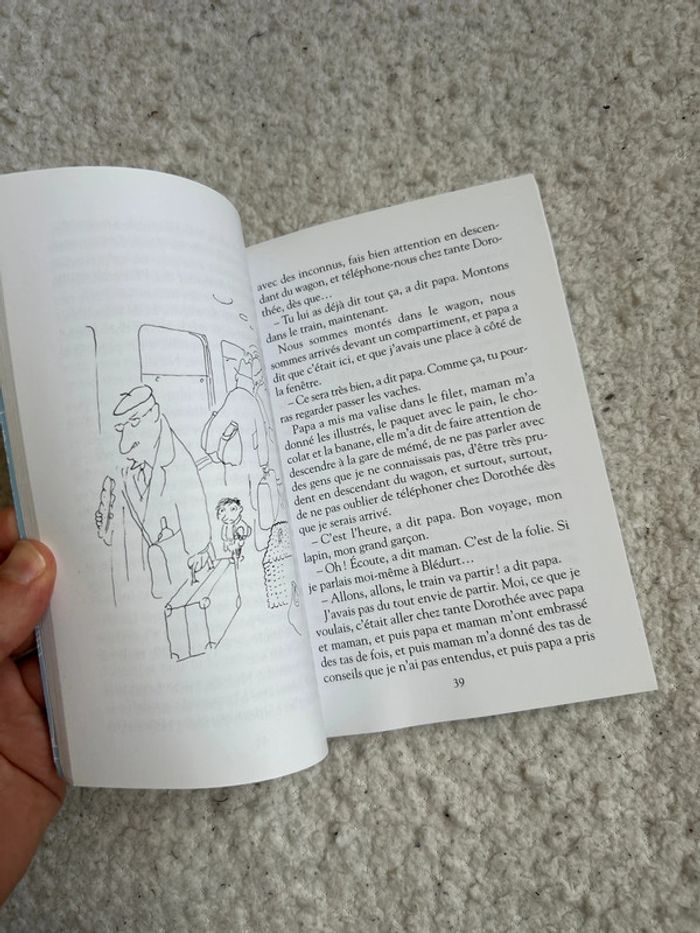 avec des inconnus, fais bien attention en descen-
dant du wagon, et téléphone-nous chez tante Doro-
thée, dès que…
– Tu lui as déjà dit tout ça, a dit papa. Montons
dans le train, maintenant.
Nous sommes montés dans le wagon, nous
sommes arrivés devant un compartiment, et papa a
dit que c'était ici, et que j'avais une place à côté de
la fenêtre.
– Ce sera très bien, a dit papa. Comme ça, tu pour-
ras regarder passer les vaches.
Papa a mis ma valise dans le filet, maman m'a
donné les illustrés, le paquet avec le pain, le cho-
colat et la banane, elle m'a dit de faire attention de
descendre à la gare de mémé, de ne pas parler avec
des gens que je ne connaissais pas, d'être très pru-
dent en descendant du wagon, et surtout, surtout,
de ne pas oublier de téléphoner chez Dorothée dès
que je serais arrivé.
– C'est l'heure, a dit papa. Bon voyage, mon
lapin, mon grand garçon.
– Oh ! Écoute, a dit maman. C'est de la folie. Si
je parlais moi-même à Blédurt…
– Allons, allons, le train va partir ! a dit papa.
J'avais pas du tout envie de partir. Moi, ce que je
voulais, c'était aller chez tante Dorothée avec papa
et maman, et puis papa et maman m'ont embrassé
des tas de fois, et puis maman m'a donné des tas de
conseils que je n'ai pas entendus, et puis papa a pris
39